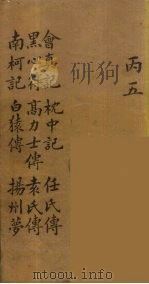 丙五
會真記 枕中記 任氏傳
黑心符 高力士傳 袁氏傳
南柯記 白猿傳 揚州夢